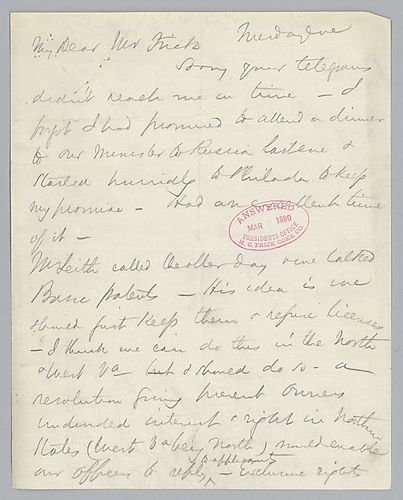 My Dear Mr Frick
Sorry your telegram
didn't reach me in time – I
forgot I had promised to attend a dinner
to our Minister to Russia last eve &
started hurriedly to Philada to keep
my promise – Had an excellent time
of it –
ANSWERED
MAR 1890
PRESIDENTS OFFICE
H. C. FRICK COKE CO.
Mr Leith called the other day & we talked
Basic patents – His idea is we
should just keep them & refuse licenses
– I think we can do this in the North
& West Va but should do so – a
resolution giving present owners
undivided interest & right in Northern
States (West Va being North) would enable
our officers to reply to applicants – exclusive rights